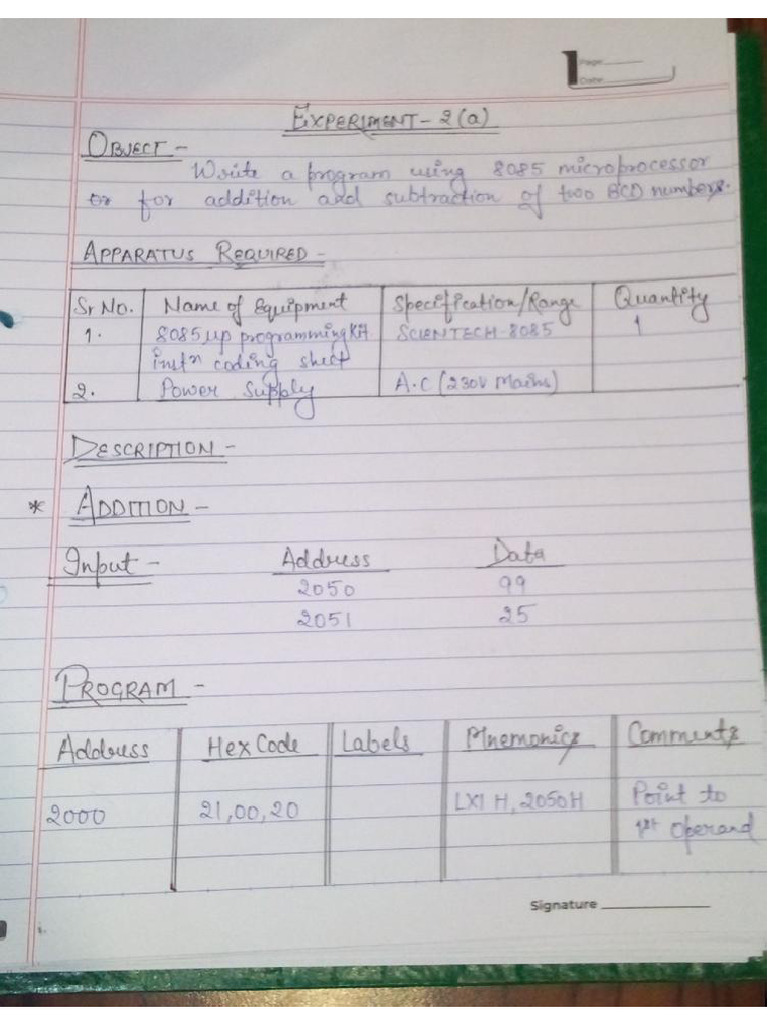 1
Page:
Date:
EXPERIMENT - 2(a)
OBJECT -
Write a program using 8085 microprocessor
or for addition and subtraction of two BCD numbers.
APPARATUS REQUIRED -
Sr No. Name of Equipment Specification/Range Quantity
1. 8085 μp programming Kit SCIENTECH-8085 1
instn coding sheet
2. Power Supply A.C (230V Mains)
DESCRIPTION -
* ADDITION -
Input - Address Data
2050 99
2051 25
PROGRAM -
Address Hex Code Labels Mnemonics Comments
2000 21,00,20 LXI H, 2050H Point to
1st Operand
Signature